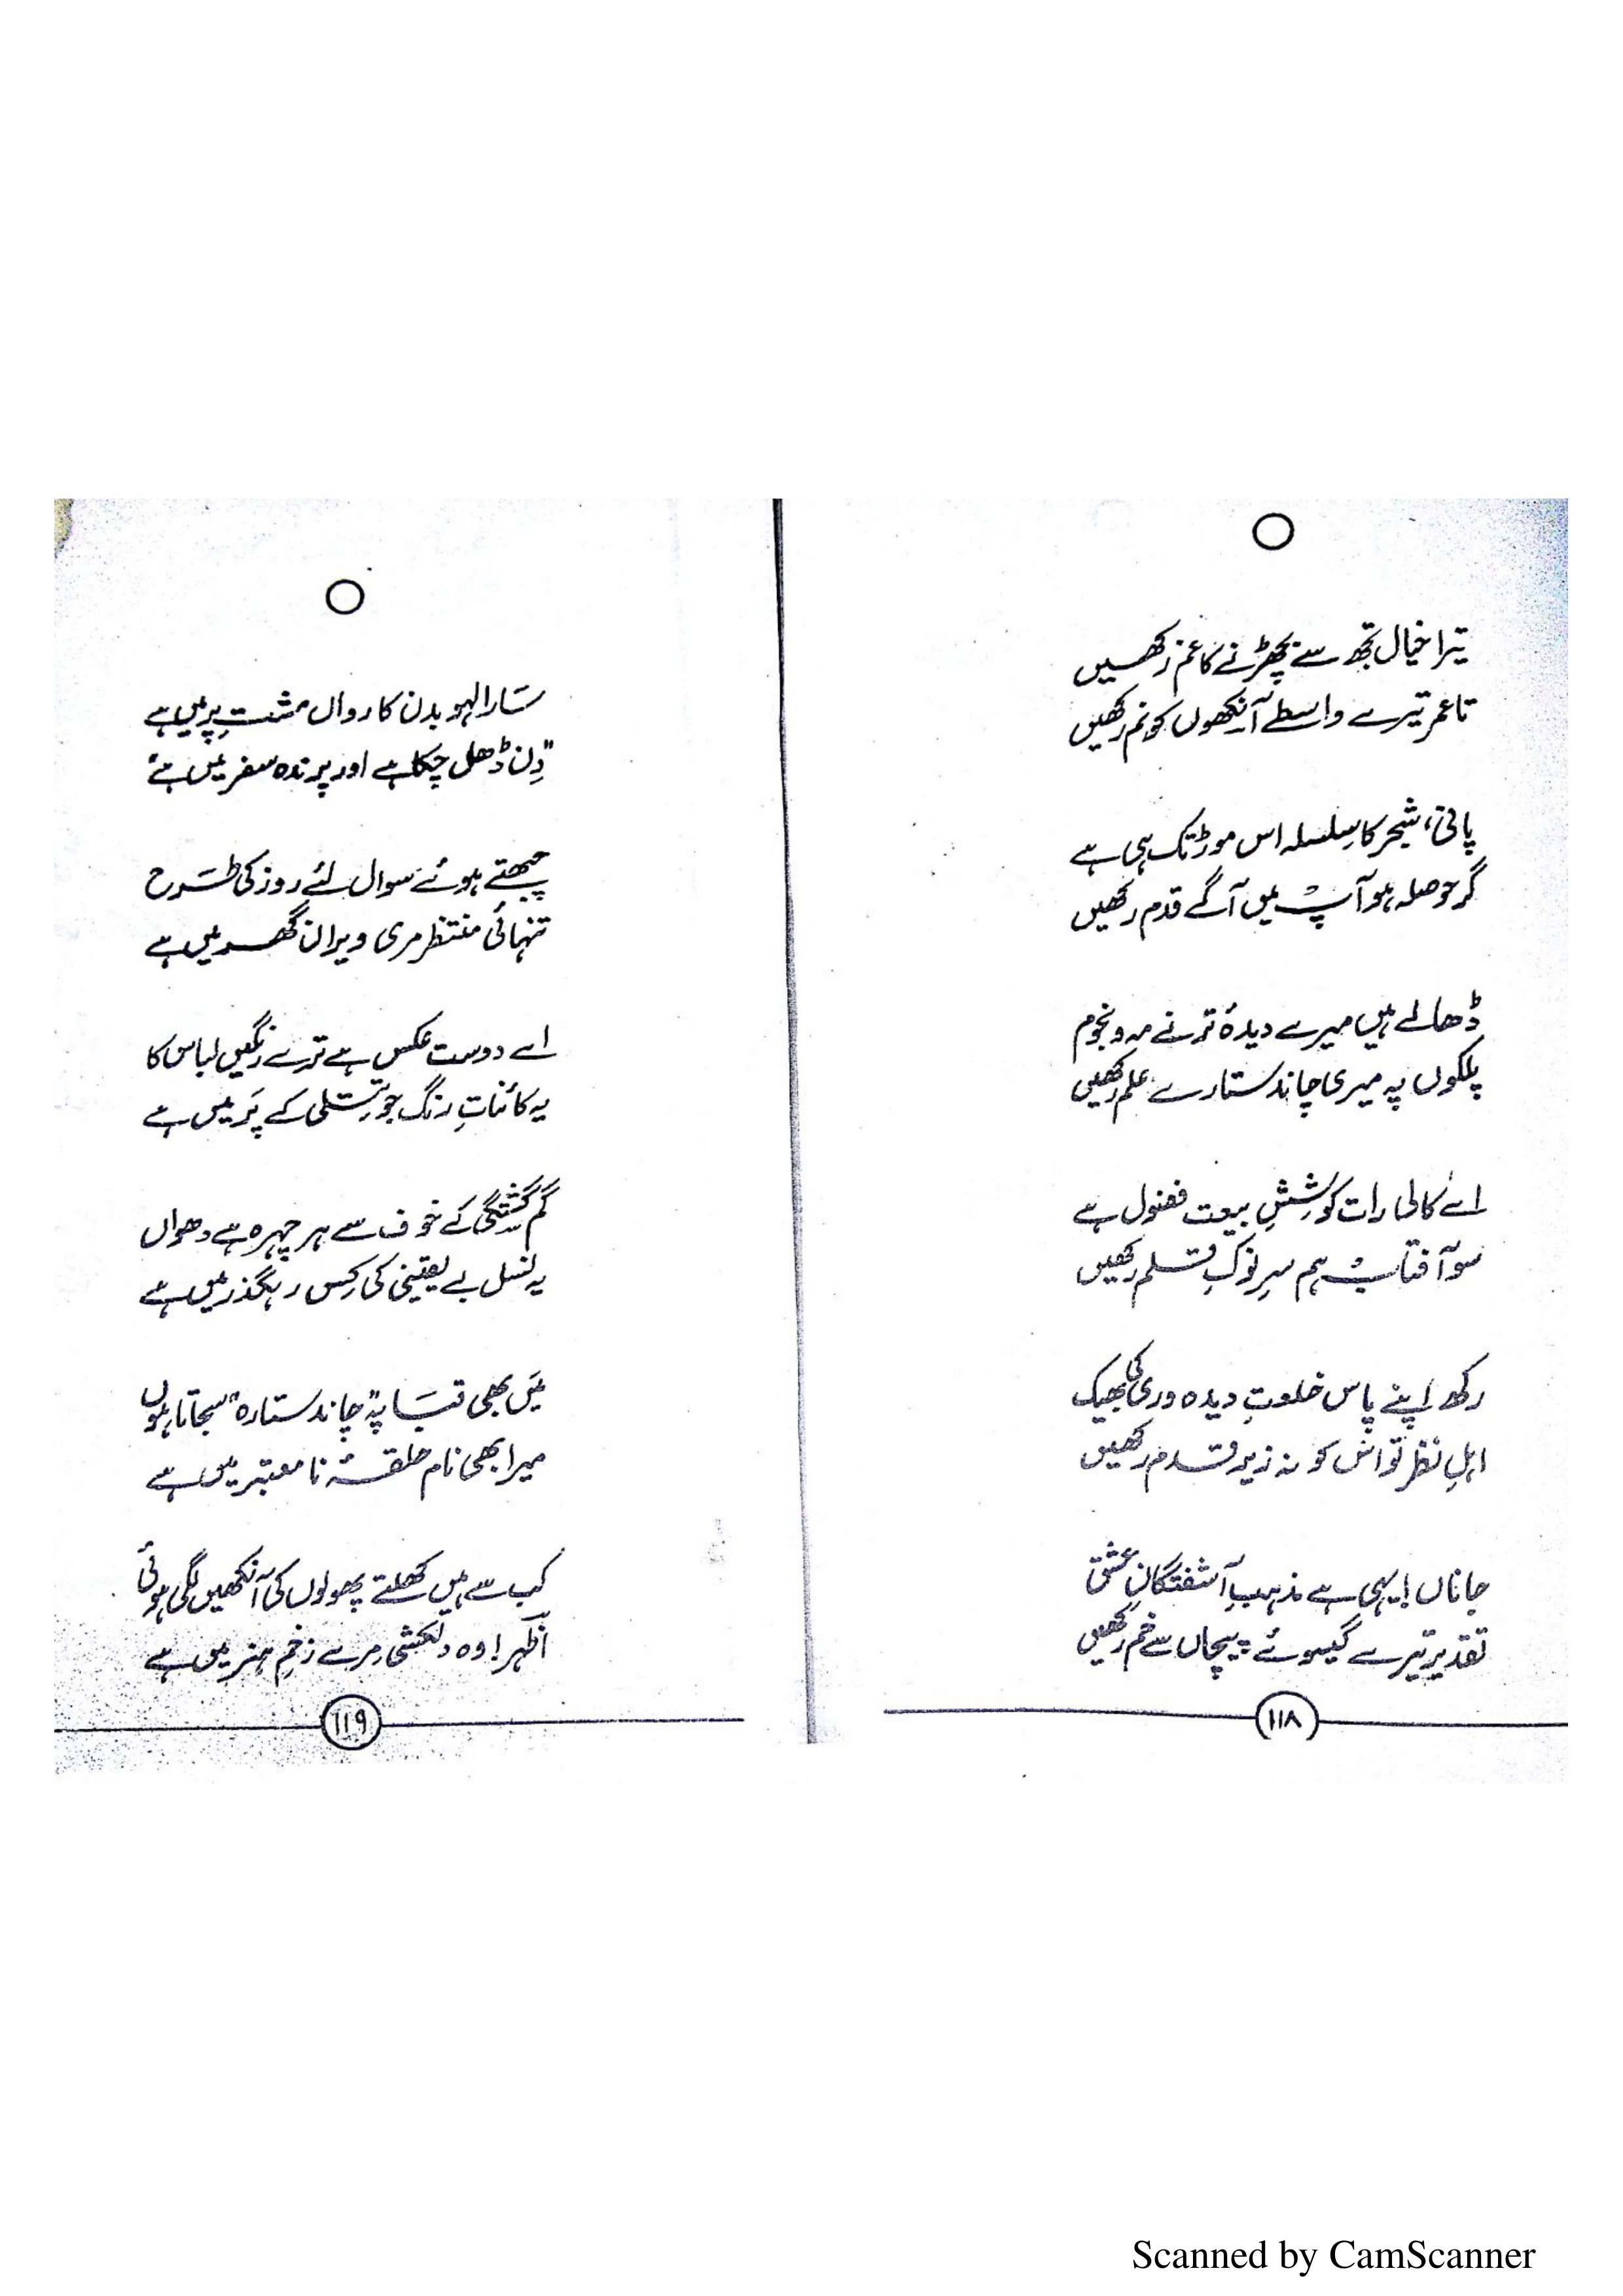 تیرا خیال تجھ سے بچھڑنے کا غم رکھیں
تا عمر تیرے واسطے آنکھوں کو نم رکھیں
پانی، شجر کا سِلسلہ اس موڑ تک ہی ہے
گر حوصلہ ہو آپ میں آگے قدم رکھیں
ڈھالے ہیں میرے دیدۂ تر نے مہ و نجوم
پلکوں پہ میری چاند ستارے علم رکھیں
اے کالی رات کوشِشِ بیعت فضول ہے
سو آفتاب ہم سرِ نوکِ قلم رکھیں
رکھ اپنے پاس خلوتِ دیدہ وری کی بھیک
اہلِ نظر تو اس کو نہ زیرِ قدم رکھیں
جاناں! یہی ہے مذہبِ آشفتگانِ عشق
تقدیر تیرے گیسوئے پیچاں سے خم رکھیں
۱۱۸
سَارا لہو بدن کا رواں مشتِ پر میں ہے
"دِن ڈھل چکا ہے اور پرندہ سفر میں ہے"
چبھتے ہوئے سوال لئے روز کی طَرح
تنہائی منتظر مری ویران گھر میں ہے
اے دوست عکس ہے ترے رنگیں لباس کا
یہ کائناتِ رنگ جو تِتلی کے پَر میں ہے
گم گشتگی کے خوف سے ہر چہرہ ہے دھواں
یہ نسل بے یقینی کی کِس رہگذر میں ہے
مَیں بھی قبَا پہ "چاند ستارہ" سجاتا ہوں
میرا بھی نام حلقۂ نا معتبر میں ہے
کب سے ہیں کھلتے پھولوں کی آنکھیں لگی ہوئی
اظہر! وہ دلکشی مِرے زخمِ ہنر میں ہے
۱۱۹
Scanned by CamScanner